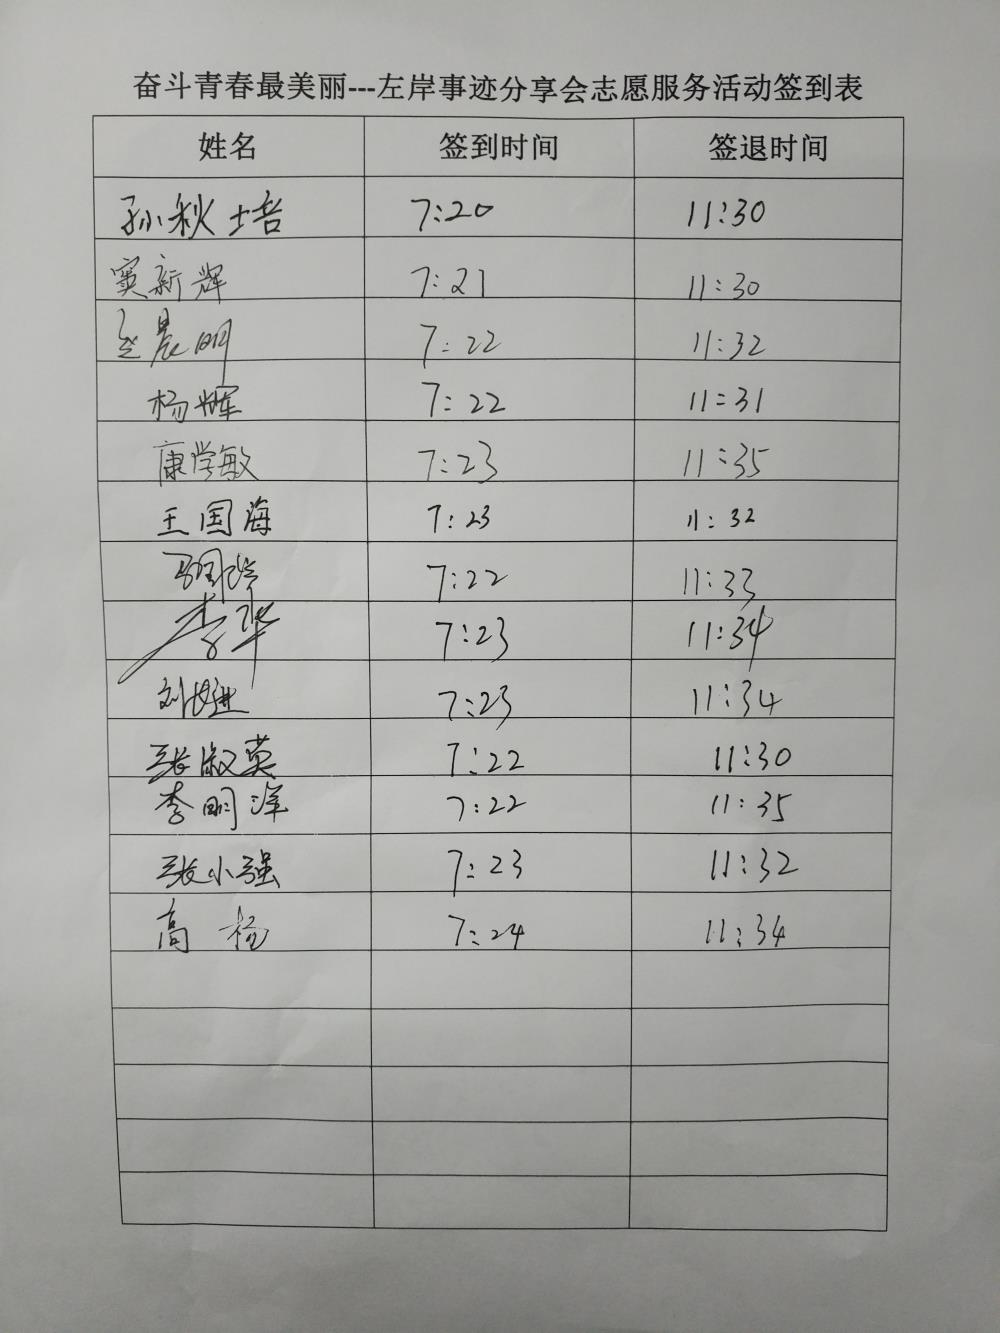 奋斗青春最美丽---左岸事迹分享会志愿服务活动签到表
姓名 签到时间 签退时间
孙秋培 7:20 11:30
窦新辉 7:21 11:30
赵晨明 7:22 11:32
杨辉 7:22 11:31
康学敏 7:23 11:35
王国海 7:23 11:32
7:22 11:33
李华 7:23 11:34
刘 7:23 11:34
张淑英 7:22 11:30
李明洋 7:22 11:35
张小强 7:23 11:32
高杨 7:24 11:34